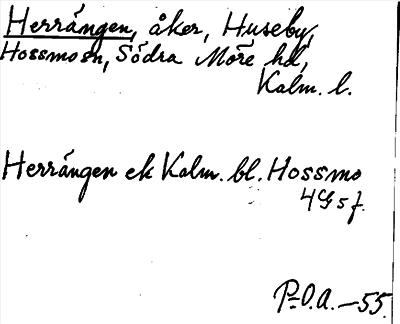 Herrángen, åker, Huseby,
Hossmo sn, Södra Möre hd,
Kalm. l.
Herrángen ek Kalm. bl. Hossmo
4G5f.
P-O.A. -55.